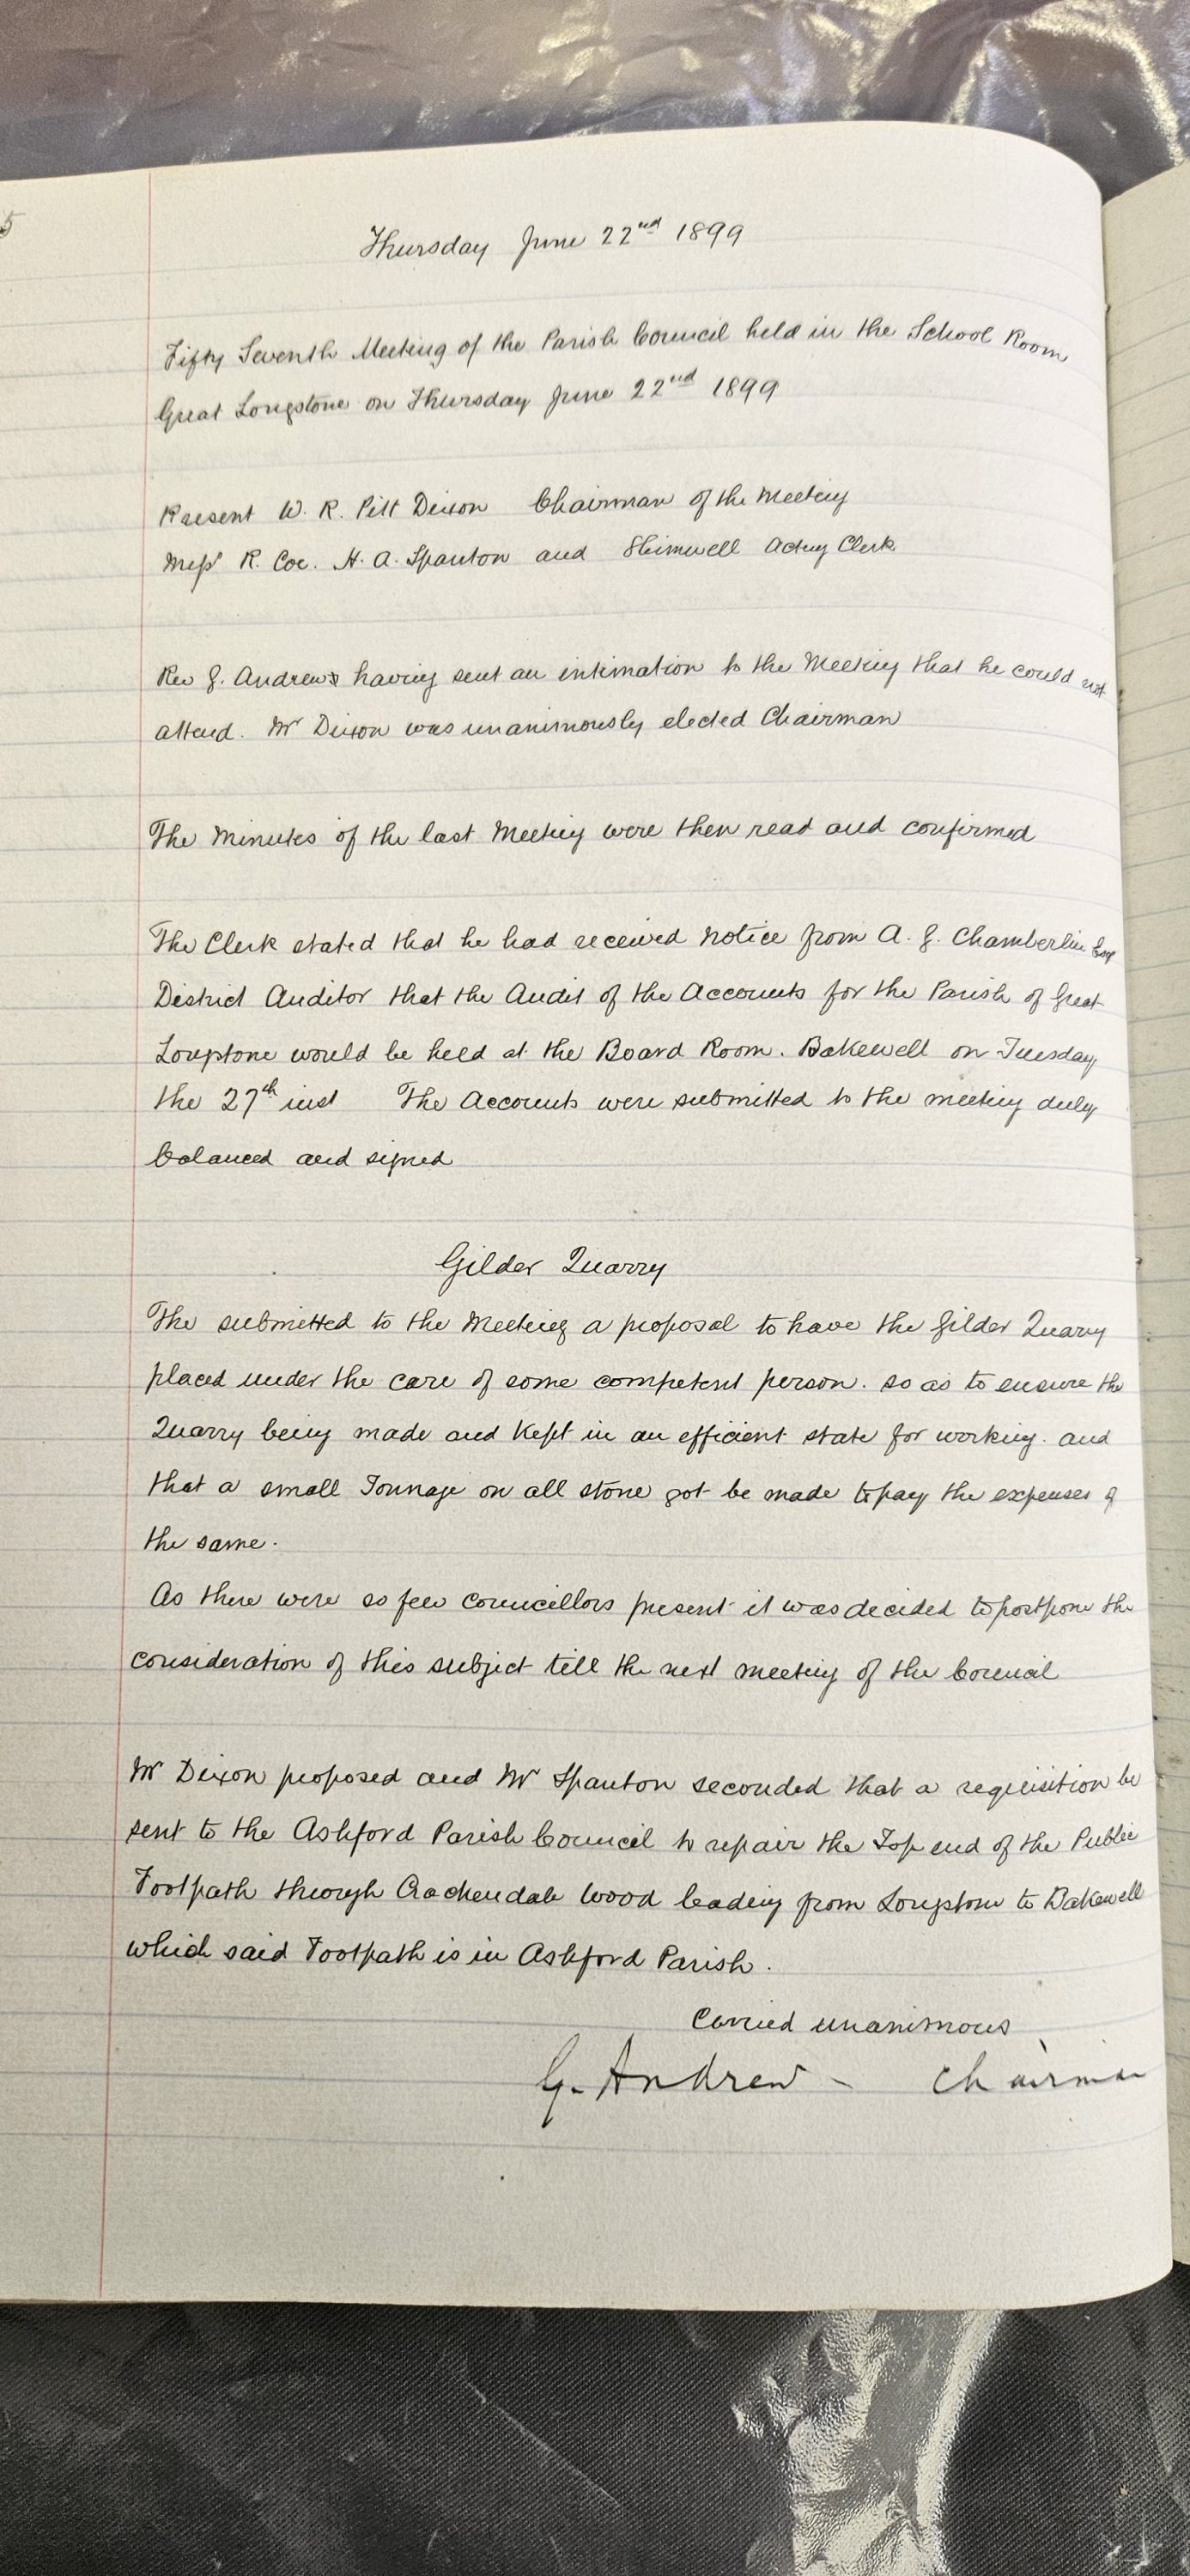 5
Thursday June 22nd 1899
Fifty Seventh Meeting of the Parish Council held in the School Room
Great Longstone on Thursday June 22nd 1899
Present W. R. Pitt Dixon Chairman of the Meeting
Messs R. Coe. H. A. Spanton and Shimwell Acting Clerk
Rev G. Andrew having sent an intimation to the Meeting that he could not
attend. Mr Dixon was unanimously elected Chairman
The Minutes of the last Meeting were then read and confirmed
The Clerk stated that he had received notice from A. G. Chamberlin Esq
District Auditor that the Audit of the Accounts for the Parish of Great
Longstone would be held at the Board Room. Bakewell on Tuesday
the 27th inst The Accounts were submitted to the meeting duly
balanced and signed
Gilder Quarry
The submitted to the Meeting a proposal to have the Gilder Quarry
placed under the care of some competent person. so as to ensure the
Quarry being made and kept in an efficient state for working. and
that a small Tonnage on all stone got be made to pay the expenses of
the same.
As there were so few councillors present it was decided to postpone the
consideration of this subject till the next meeting of the Council
Mr Dixon proposed and Mr Spanton seconded that a requisition be
sent to the Ashford Parish Council to repair the Top end of the Public
Footpath through Crachendale Wood leading from Longstone to Bakewell
which said Footpath is in Ashford Parish.
Carried unanimous
G. Andrew - Chairman